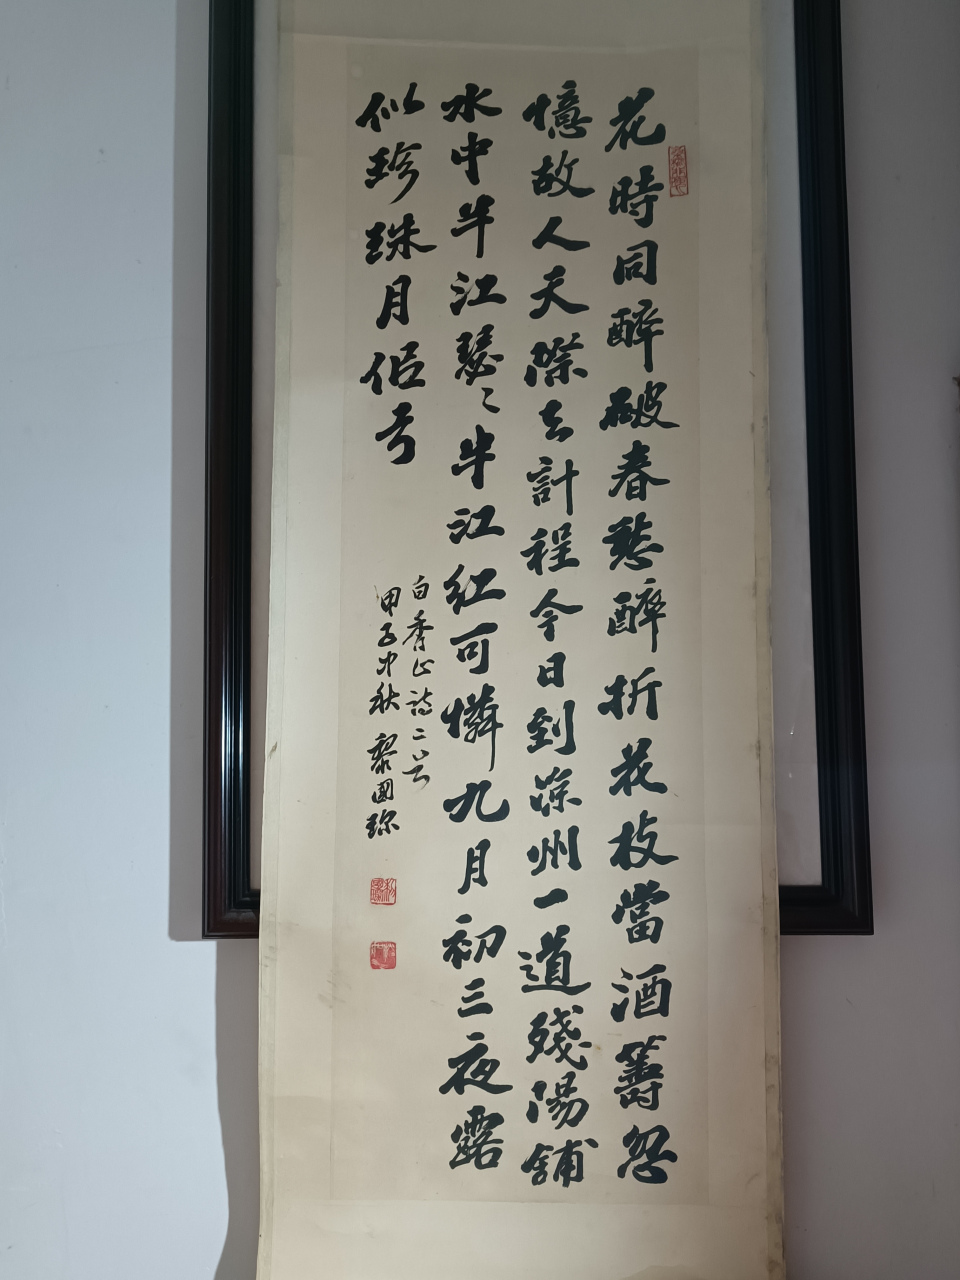 花時同醉破春愁醉折花枝當酒籌忽
憶故人天際去計程今日到涼州一道殘陽舖
水中半江瑟〻半江紅可憐九月初三夜露
似珍珠月佀弓
白香山詩二首
甲子中秋 黎國